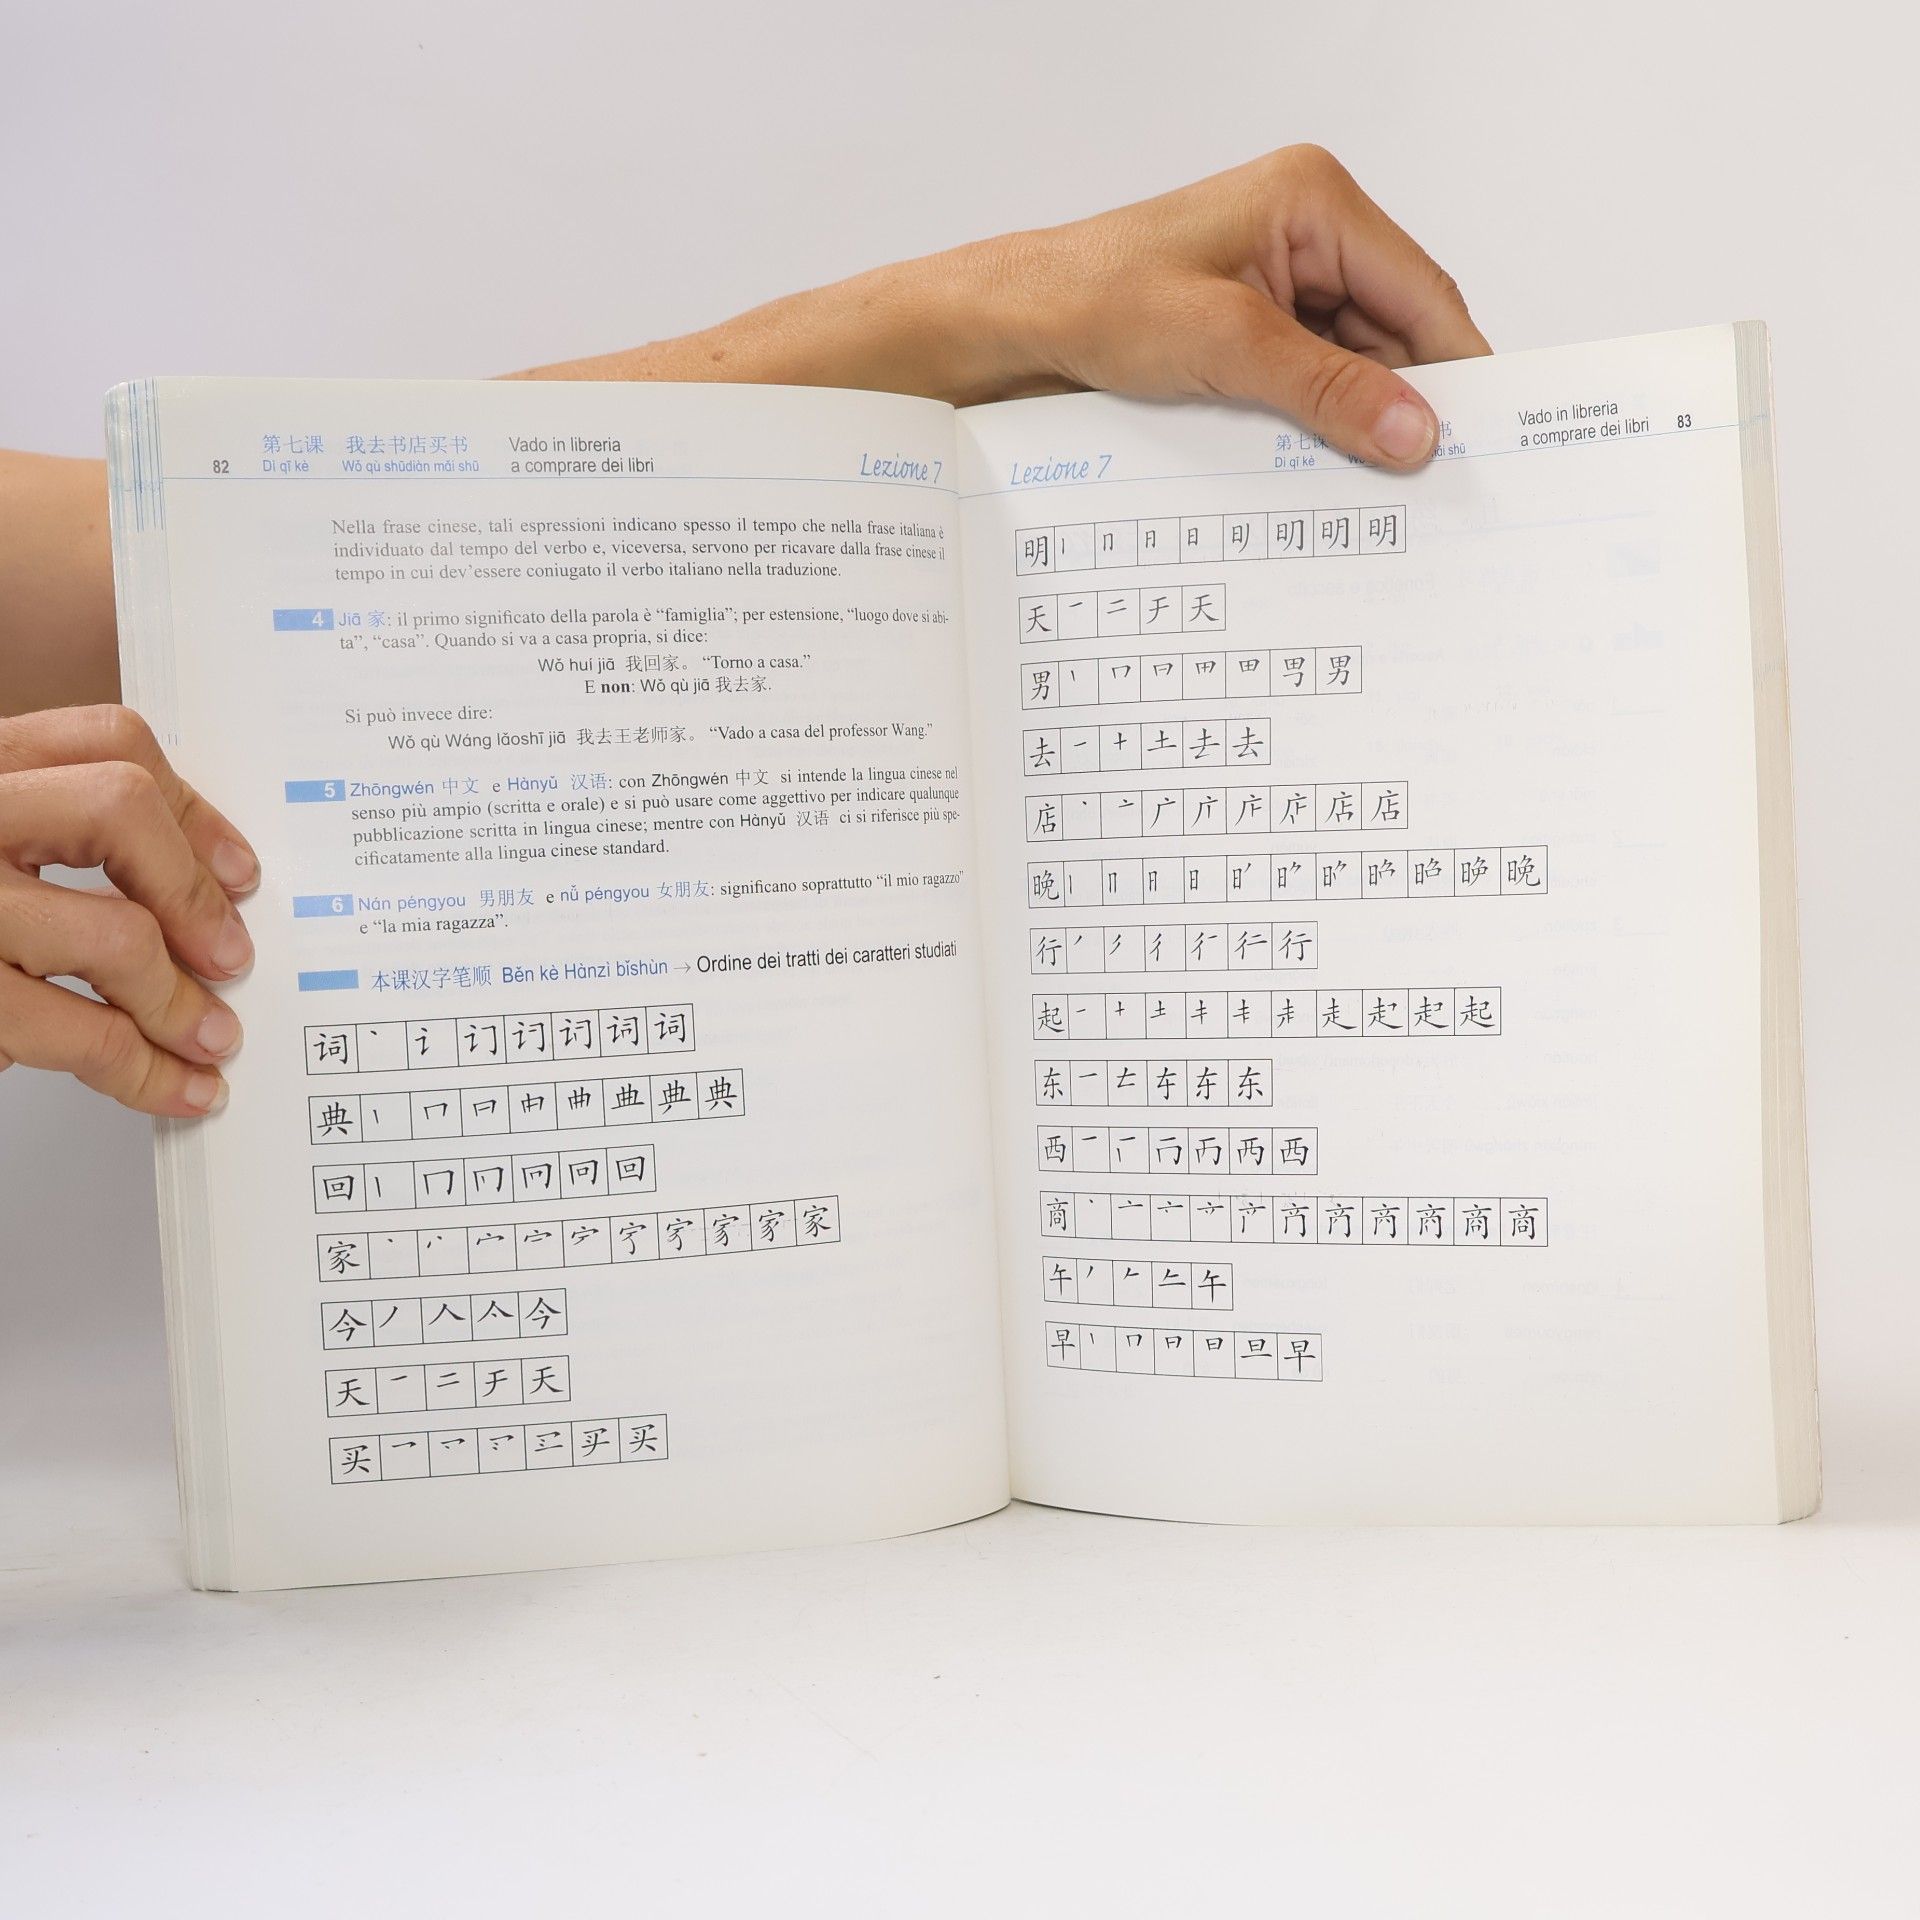 82
第七课 我去书店买书 Vado in libreria
Dì qī kè Wǒ qù shūdiàn mǎi shū a comprare dei libri
Lezione 7
Nella frase cinese, tali espressioni indicano spesso il tempo che nella frase italiana è
individuato dal tempo del verbo e, viceversa, servono per ricavare dalla frase cinese il
tempo in cui dev’essere coniugato il verbo italiano nella traduzione.
4 Jiā 家: il primo significato della parola è “famiglia”; per estensione, “luogo dove si abi-
ta”, “casa”. Quando si va a casa propria, si dice:
Wǒ huí jiā 我回家。 “Torno a casa.”
E non: Wǒ qù jiā 我去家.
Si può invece dire:
Wǒ qù Wáng lǎoshī jiā 我去王老师家。 “Vado a casa del professor Wang.”
5 Zhōngwén 中文 e Hànyǔ 汉语: con Zhōngwén 中文 si intende la lingua cinese nel
senso più ampio (scritta e orale) e si può usare come aggettivo per indicare qualunque
pubblicazione scritta in lingua cinese; mentre con Hànyǔ 汉语 ci si riferisce più spe-
cificatamente alla lingua cinese standard.
6 Nán péngyou 男朋友 e nǚ péngyou 女朋友: significano soprattutto “il mio ragazzo”
e “la mia ragazza”.
本课汉字笔顺 Běn kè Hànzì bǐshùn → Ordine dei tratti dei caratteri studiati
词 词
典 典
回 回
家 家
今 今
天 天
买 买
Lezione 7
第七课 书 Vado in libreria
Dì qī kè mǎi shū a comprare dei libri
83
明 明
天 天
男 男
去 去
店 店
晚 晚
行 行
起 起
东 东
西 西
商 商
午 午
早 早